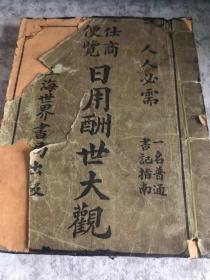 人人必需
一名普通
書記指南
仕商
便覽
日用酬世大觀
上海世界書局出版